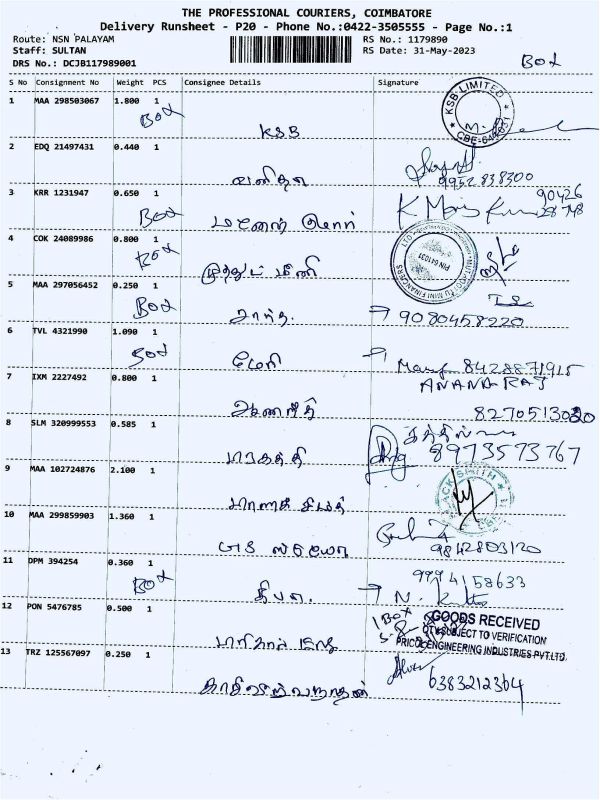 THE PROFESSIONAL COURIERS, COIMBATORE
Delivery Runsheet - P20 - Phone No.:0422-3505555 - Page No.:1
Route: NSN PALAYAM RS No.: 1179890
Staff: SULTAN RS Date: 31-May-2023
DRS No.: DCJB117989001
Box
S No Consignment No Weight PCS Consignee Details Signature
1 MAA 298503067 1.800 1
Box KSB
KSB LIMITED
2 EDQ 21497431 0.440 1
வனிதா 9952838300
3 KRR 1231947 0.650 1
Box
90426
4 COK 24089986 0.800 1
Box முத்தூட் மினி
MUTHOOTTU MINI FINANCIERS LTD
PIN 641031
5 MAA 297056452 0.250 1
Box சாந்த. 9080458220
6 TVL 4321990 1.090 1
Box மேரி Mary 8428871915
7 IXM 2227492 0.800 1
ANAND RAJ
8270513020
8 SLM 320999553 0.585 1
8973573767
9 MAA 102724876 2.100 1
10 MAA 299859903 1.360 1
9842803120
11 DPM 394254 0.360 1
Box தீபா. 9994158633
12 PON 5476785 0.500 1
1 Box
GOODS RECEIVED
QTY SUBJECT TO VERIFICATION
PRICOL ENGINEERING INDUSTRIES PVT.LTD.
13 TRZ 125567097 0.250 1
6383212364